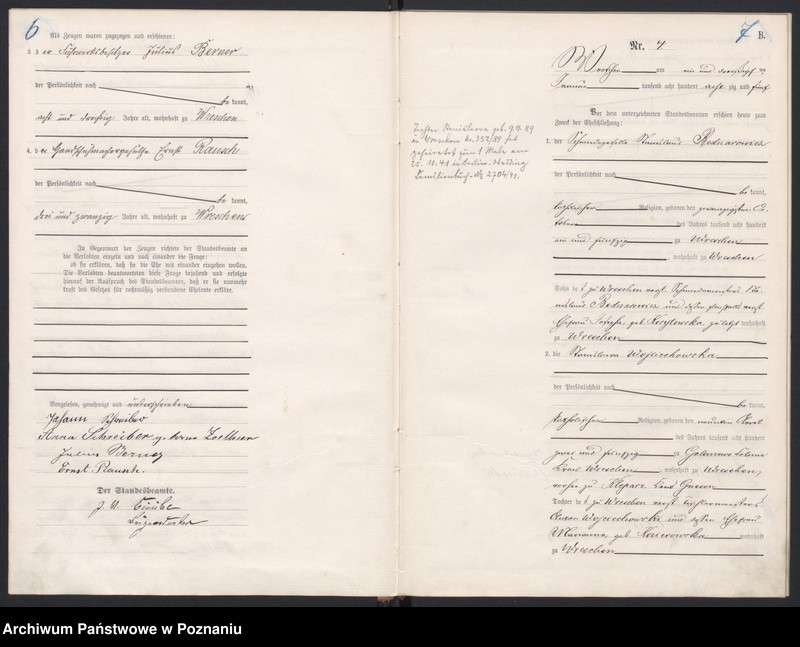 6
Als Zeugen waren zugezogen und erschienen:
3. der Fuhrwerksbesitzer Julius Berner
der Persönlichkeit nach
be kannt,
acht und dreißig Jahre alt, wohnhaft zu Wreschen
4. der Handschuhmachergehülfe Ernst Rausch
der Persönlichkeit nach
be kannt,
drei und zwanzig Jahre alt, wohnhaft zu Wreschen
In Gegenwart der Zeugen richtete der Standesbeamte an
die Verlobten einzeln und nach einander die Frage:
ob sie erklären, daß sie die Ehe mit einander eingehen wollen.
Die Verlobten beantworteten diese Frage bejahend und erfolgte
hierauf der Ausspruch des Standesbeamten, daß er sie nunmehr
kraft des Gesetzes für rechtmäßig verbundene Eheleute erkläre.
Vorgelesen, genehmigt und unterschrieben
Johann Schreiber
Anna Schreiber geborne
Julius Berner
Ernst Rausch.
Der Standesbeamte.
7 B.
Nr. 4
Wreschen am ein und dreißigsten
Januar tausend acht hundert acht zig und fünf
Vor dem unterzeichneten Standesbeamten erschien heute zum
Zweck der Eheschließung:
1. der Schmiedegeselle Stanislaus Bednarowicz
der Persönlichkeit nach
be kannt,
katholischer Religion, geboren den zwanzigsten Oc-
tober des Jahres tausend acht hundert
ein und fünfzig zu Wreschen
, wohnhaft zu Wreschen
Sohn des zu Wreschen verst. Schmiedemeisters
Bednarowicz und dessen verst.
Ehefrau Josepha, geb. zuletzt wohnhaft
zu Wreschen
2. die Stanislawa Wojciechowska
der Persönlichkeit nach
be kannt,
katholischer Religion, geboren den neunten April
des Jahres tausend acht hundert
zwei und fünfzig zu
Kreis Wreschen, wohnhaft zu Wreschen,
vorher zu Kleparz Kreis Gnesen
Tochter des zu Wreschen verst. Tischlermeisters
Wojciechowski und dessen Ehefrau
Marianna, geb. wohnhaft
zu Wreschen
Tochter Stanislawa geb. 9.4.89
in Wreschen Nr. 352/89 hat
geheiratet zum 1 Male am
25. 10.41 in Berlin-
Familienbuch-Nr 2704/41.
Archiwum Państwowe w Poznaniu